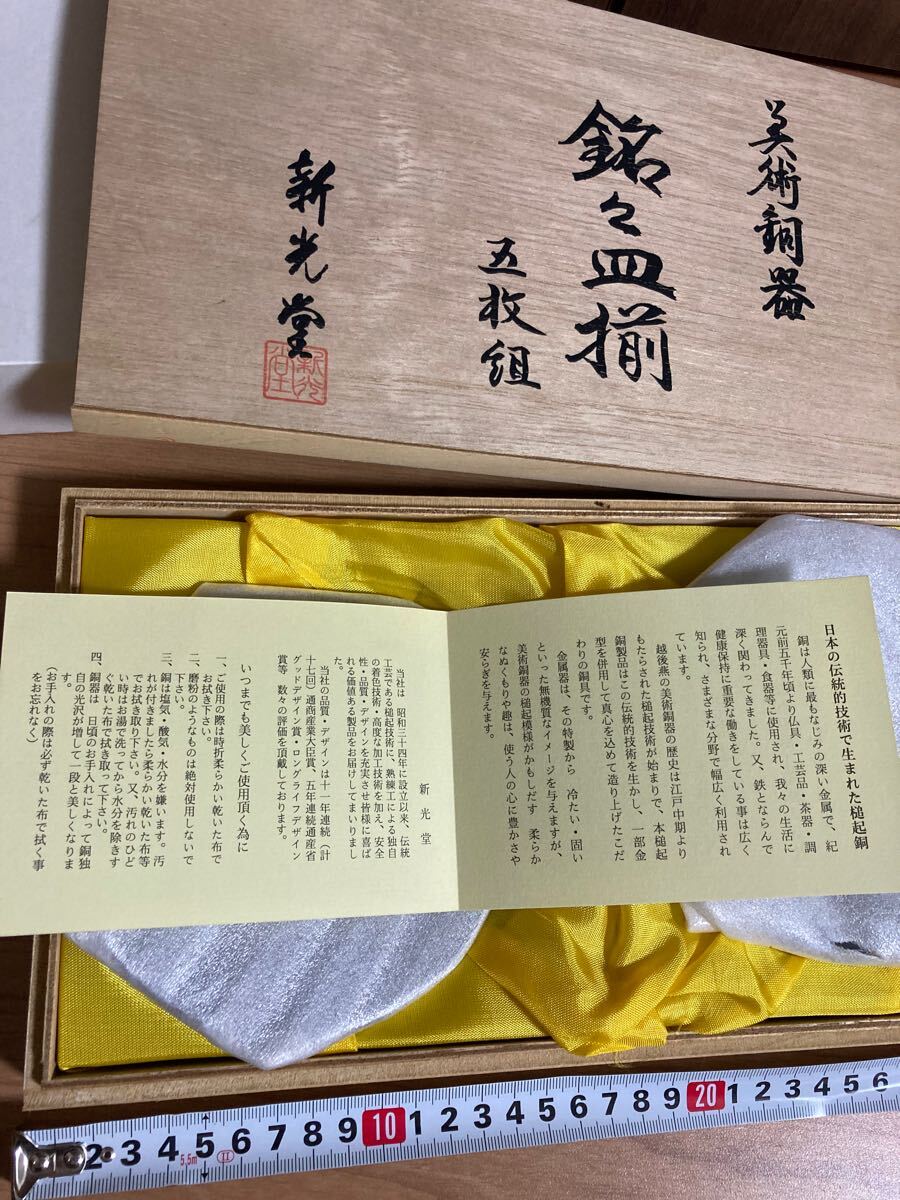 美術銅器
銘々皿揃
五枚組
新光堂
日本の伝統的技術で生まれた槌起銅
銅は人類に最もなじみの深い金属で、紀
元前五千年頃より仏具・工芸品・茶器・調
理器具・食器等に使用され、我々の生活に
深く関わってきました。又、鉄とならんで
健康保持に重要な働きをしている事は広く
知られ、さまざまな分野で幅広く利用され
ています。
越後燕の美術銅器の歴史は江戸中期より
もたらされた槌起技術が始まりで、本槌起
銅製品はこの伝統的技術を生かし、一部金
型を併用して真心を込めて造り上げたこだ
わりの銅具です。
金属器は、その特製から 冷たい・固い
といった無機質なイメージを与えますが、
美術銅器の槌起模様がかもしだす 柔らか
なぬくもりや趣は、使う人の心に豊かさや
安らぎを与えます。
新光堂
当社は 昭和三十四年に設立以来、伝統
工芸である槌起技術に、熟練工による独自
の着色技術・高度な加工技術を加え、安全
性・品質・デザインを充実させ皆様に喜ば
れる価値ある製品をお届けしてまいりまし
た。
当社の品質・デザインは十一年連続（計
十七回）通商産業大臣賞、五年連続通産省
グッドデザイン賞・ロングライフデザイン
賞等 数々の評価を頂戴しております。
いつまでも美しくご使用頂く為に
一、ご使用の際は時折柔らかい乾いた布で
お拭き下さい。
二、磨粉のようなものは絶対使用しないで
下さい。
三、銅は塩気・酸気・水分を嫌います。汚
れが付きましたら柔らかい乾いた布等
でお拭き取り下さい。又、汚れのひど
い時はお湯で洗ってから水分を除きす
ぐ乾いた布で拭き取って下さい。
四、銅器は 日頃のお手入れによって銅独
自の光沢が増して一段と美しくなりま
す。
（お手入れの際は必ず乾いた布で拭く事
をお忘れなく）
2 3 4 5 6 7 8 9 10 1 2 3 4 5 6 7 8 9 20 1 2 3 4 5 6
5.5m